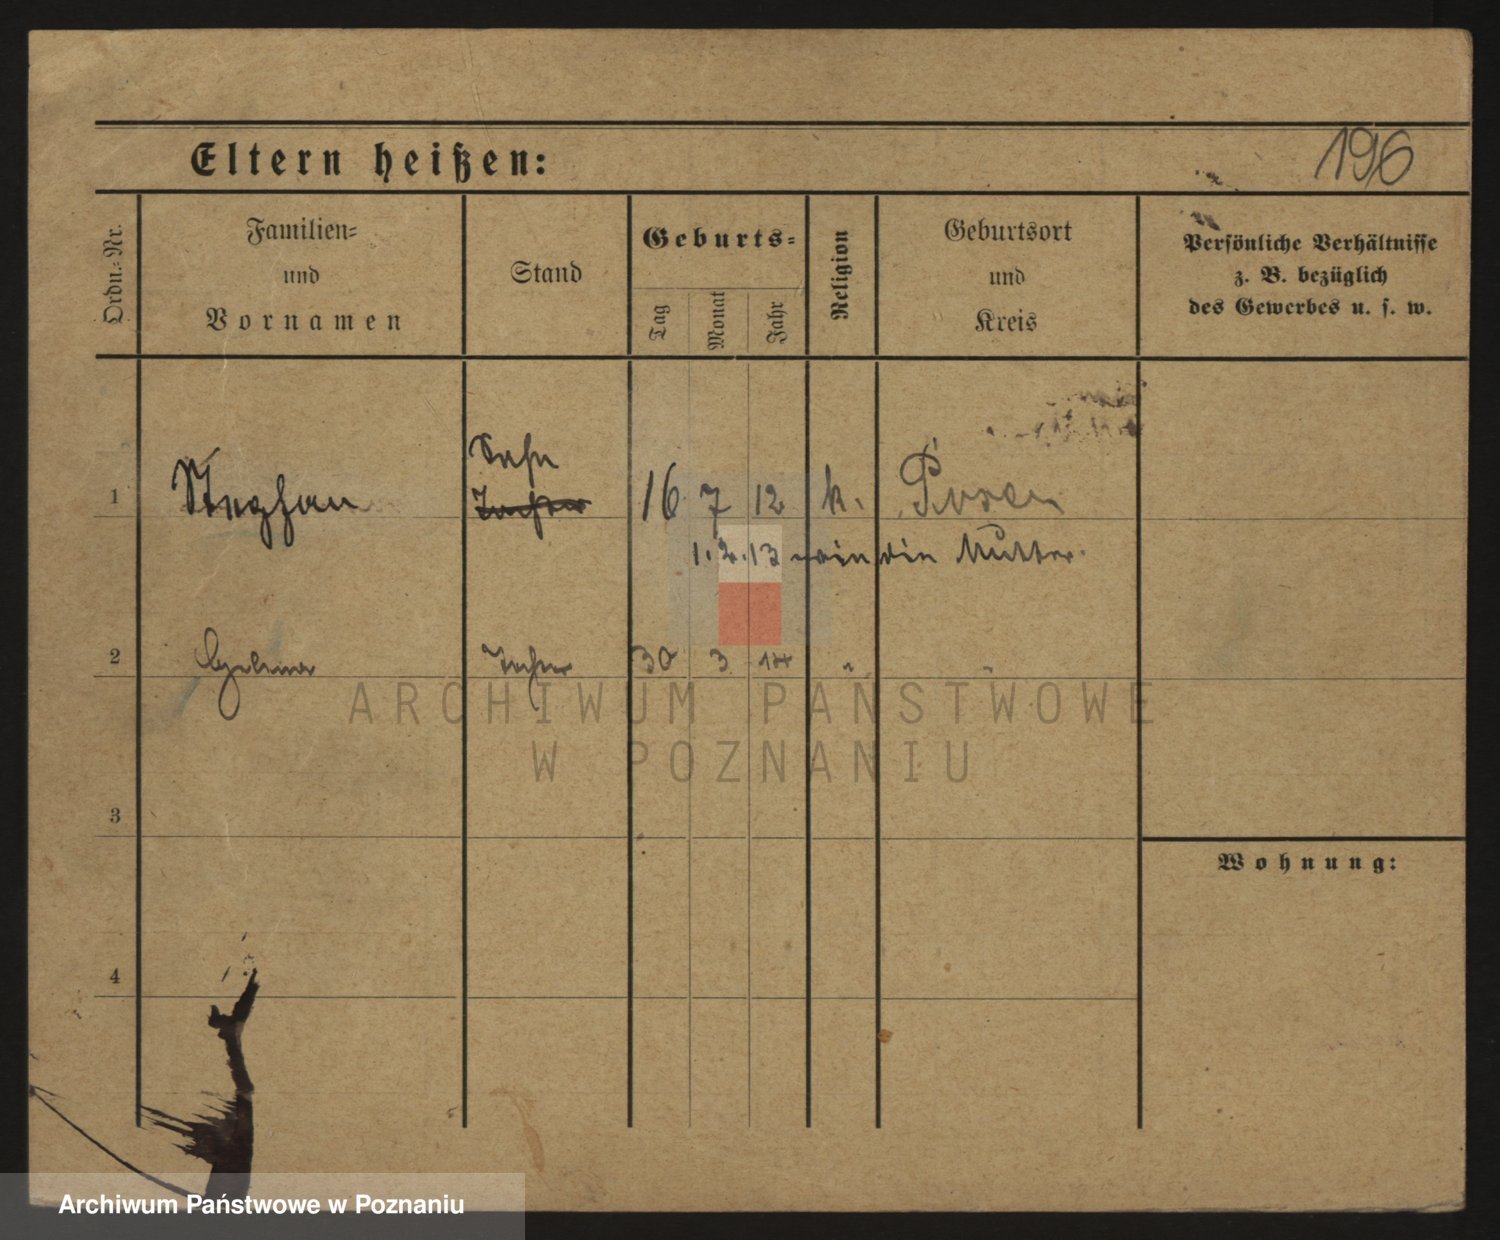 Eltern heißen:
196
Ordn.-Nr.
Familien-
und
Vornamen
Stand
Geburts-
Tag
Monat
Jahr
Religion
Geburtsort
und
Kreis
Persönliche Verhältnisse
z. B. bezüglich
des Gewerbes u. s. w.
Sohn
1 Stephan Tochter 16 7 12 k. Posen
1.2.13 wie die Mutter.
2 Tochter 30 3 14 " "
ARCHIWUM PAŃSTWOWE
W POZNANIU
3
Wohnung:
4
Archiwum Państwowe w Poznaniu